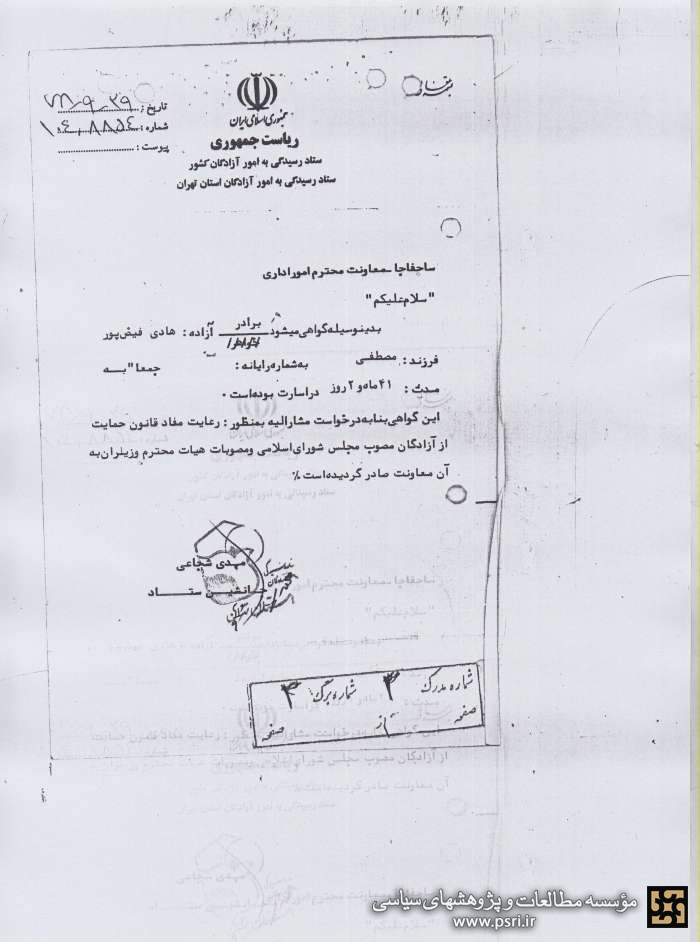 بسمه تعالی
جمهوری اسلامی ایران
ریاست جمهوری
ستاد رسیدگی به امور آزادگان کشور
ستاد رسیدگی به امور آزادگان استان تهران
تاریخ:
شماره:
پیوست:
ساحفاجا ـ معاونت محترم امور اداری
"سلام علیکم"
بدینوسیله گواهی میشود برادر / خواهر / آزاده: هادی فیض‌پور
فرزند: مصطفی به شماره رایانه: جمعا" به
مدت: ۴۱ ماه و ۲ روز در اسارت بوده است.
این گواهی بنا به درخواست مشارالیه بمنظور: رعایت مفاد قانون حمایت
از آزادگان مصوب مجلس شورای اسلامی و مصوبات هیات محترم وزیران به
آن معاونت صادر گردیده است٪
مهدی شجاعی
جانشین ستاد
شماره مدرک ۳ شماره برگ ۳
صفحه از صفحه
مؤسسه مطالعات و پژوهشهای سیاسی
www.psri.ir